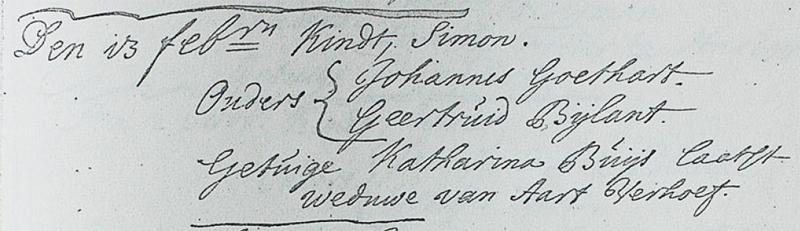 Den 13 febrn Kindt, Simon.
Ouders { Johannes Goethart.
Geertruid Bijlant.
Getuige Katharina Buijs laatst
weduwe van Aart Verhoef.